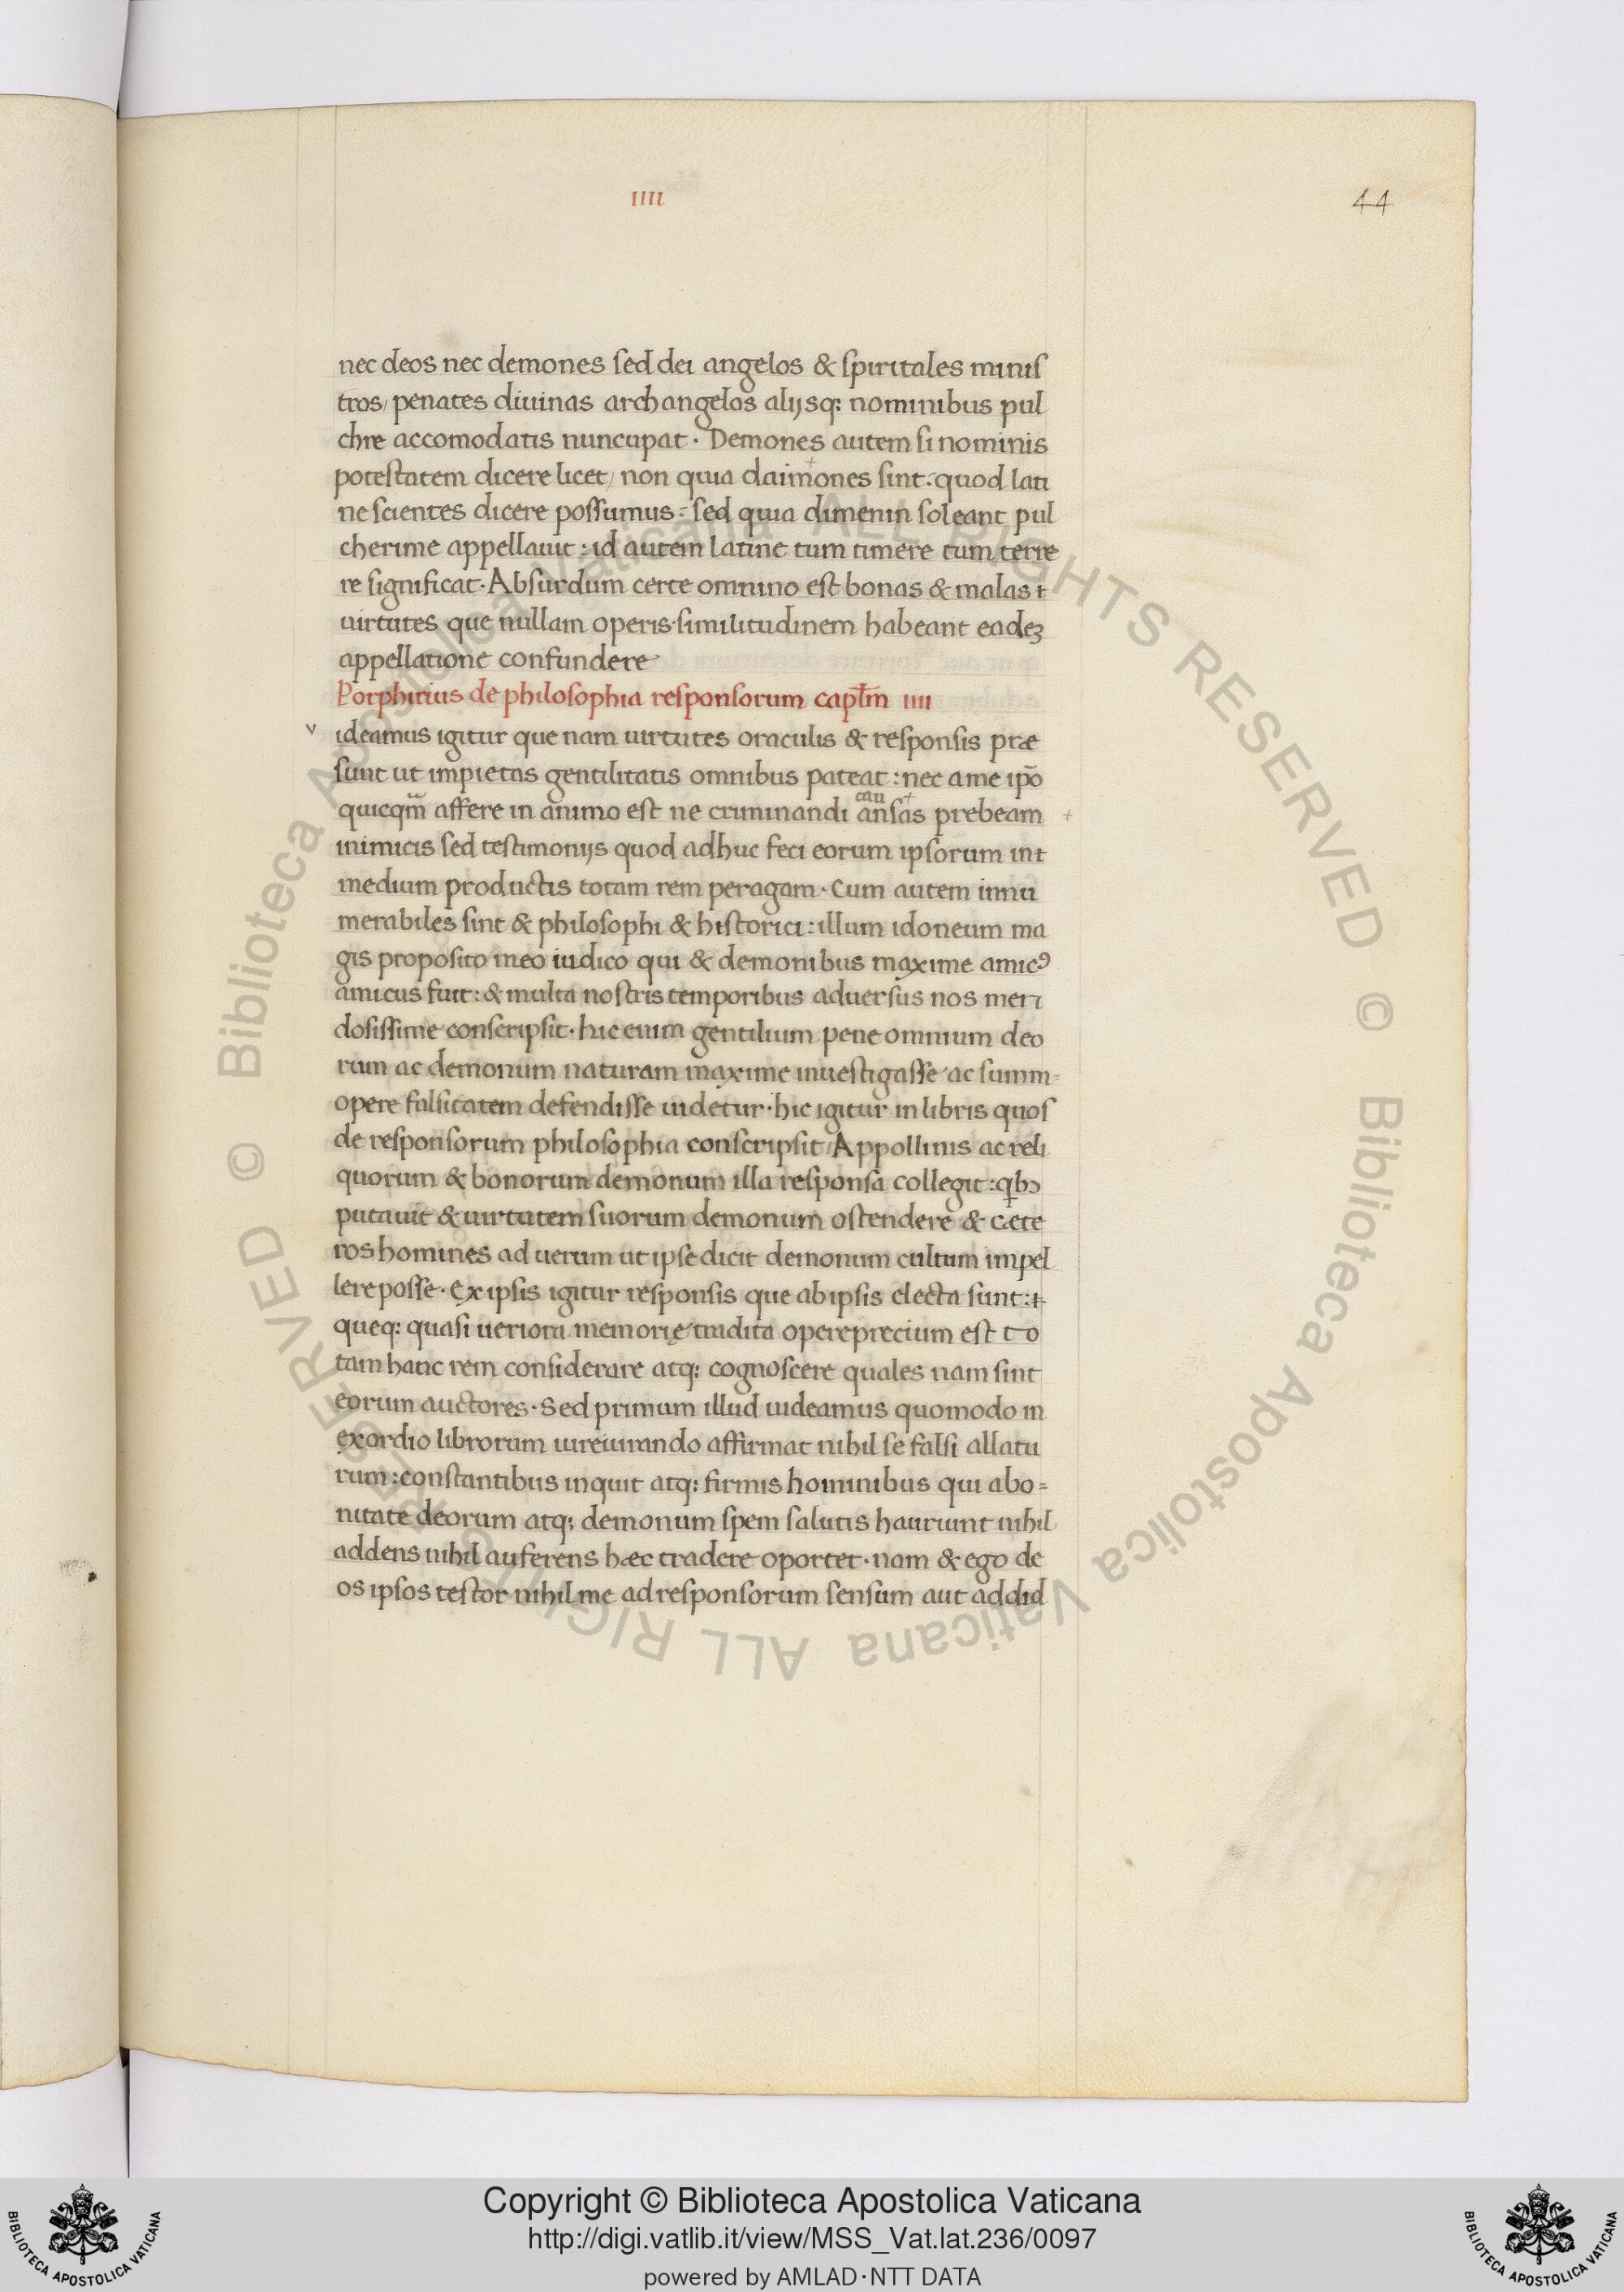 IIII
44
nec deos nec demones sed dei angelos & spiritales minis
tros/ penates diuinas archangelos alijsq; nominibus pul
chre accomodatis nuncupat · Demones autem si nominis
potestatem dicere licet/ non quia daimones sint: quod lati
ne scientes dicere possumus: sed quia dimenin soleant pul
cherime appellauit: id autem latine tum timere tum terre
re significat · Absurdum certe omnino est bonas & malas
uirtutes que nullam operis similitudinem habeant eadeȝ
appellatione confundere
Porphirius de philosophia responsorum capłm IIII
v ideamus igitur que nam uirtutes oraculis & responsis præ
sunt ut impietas gentilitatis omnibus pateat: nec a me ip̄o
quicqm̄ affere in animo est ne criminandi ansas prebeam +
cau +
inimicis sed testimonijs quod adhuc feci eorum ipsorum in
medium productis totam rem peragam · Cum autem innu
merabiles sint & philosophi & historici: illum idoneum ma
gis proposito meo iudico qui & demonibus maxime amicꝰ
amicus fuit: & multa nostris temporibus aduersus nos men
dosissime conscripsit · hic enim gentilium pene omnium deo
rum ac demonum naturam maxime inuestigasse ac summ=
opere falsitatem defendisse uidetur · hic igitur in libris quos
de responsorum philosophia conscripsit/ Appollinis ac reli
quorum & bonorum demonum illa responsa collegit: qbꝫ
putauit & uirtutem suorum demonum ostendere & cæte
ros homines ad uerum ut ipse dicit demonum cultum impel
lere posse · Ex ipsis igitur responsis que ab ipsis electa sunt:
queq; quasi ueriora memorię tradita opereprecium est to
tam hanc rem considerare atq; cognoscere quales nam sint
eorum auctores · Sed primum illud uideamus quomodo in
exordio librorum iureiurando affirmat nihil se falsi allatu
rum: constantibus inquit atq; firmis hominibus qui a bo=
nitate deorum atq; demonum spem salutis hauriunt nihil
addens nihil auferens hæc tradere oportet · nam & ego de
os ipsos testor nihil me ad responsorum sensum aut addid
© Biblioteca Apostolica Vaticana ALL RIGHTS RESERVED © Biblioteca Apostolica Vaticana ALL RIGHTS RESERVED
Copyright © Biblioteca Apostolica Vaticana
http://digi.vatlib.it/view/MSS_Vat.lat.236/0097
powered by AMLAD·NTT DATA
BIBLIOTECA APOSTOLICA VATICANA
BIBLIOTECA APOSTOLICA VATICANA